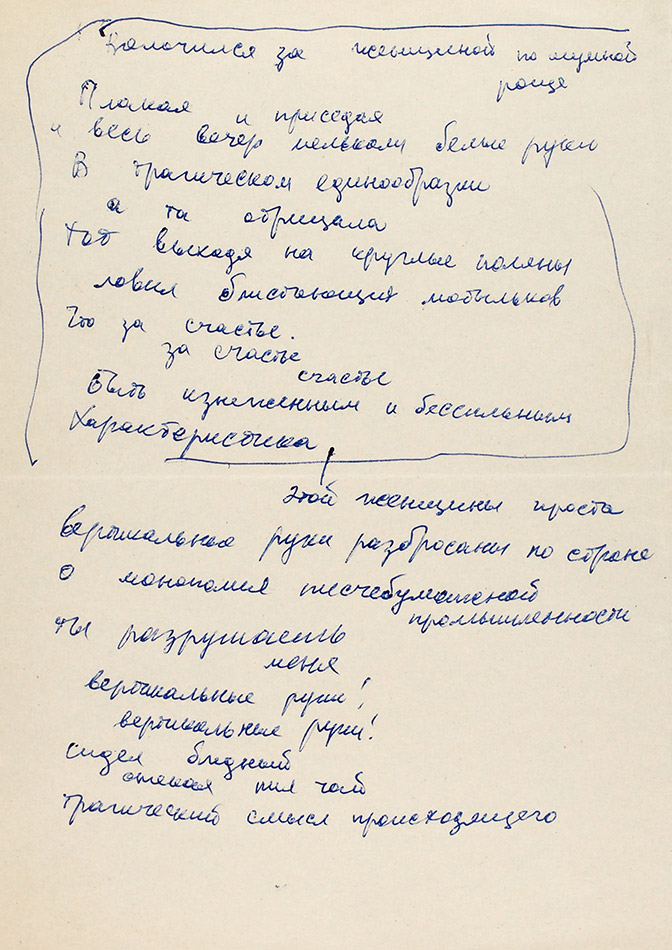 Волочился за женщиной по шумной
роще
Плакая и приседая
и весь вечер мелькали белые руки
В трагическом единообразии
а та отрицала
Тот выходя на круглые поляны
ловил блистающих мотыльков
Что за счастье.
за счастье
счастье
быть изнеженным и бессильным
Характеристика
этой женщины проста
вертикальные руки разбросаны по стране
О монополия писчебумажной
промышленности
ты разрушаешь
меня
вертикальные руки!
вертикальные руки!
сидел бледный
стекая пил чай
трагический смысл происходящего